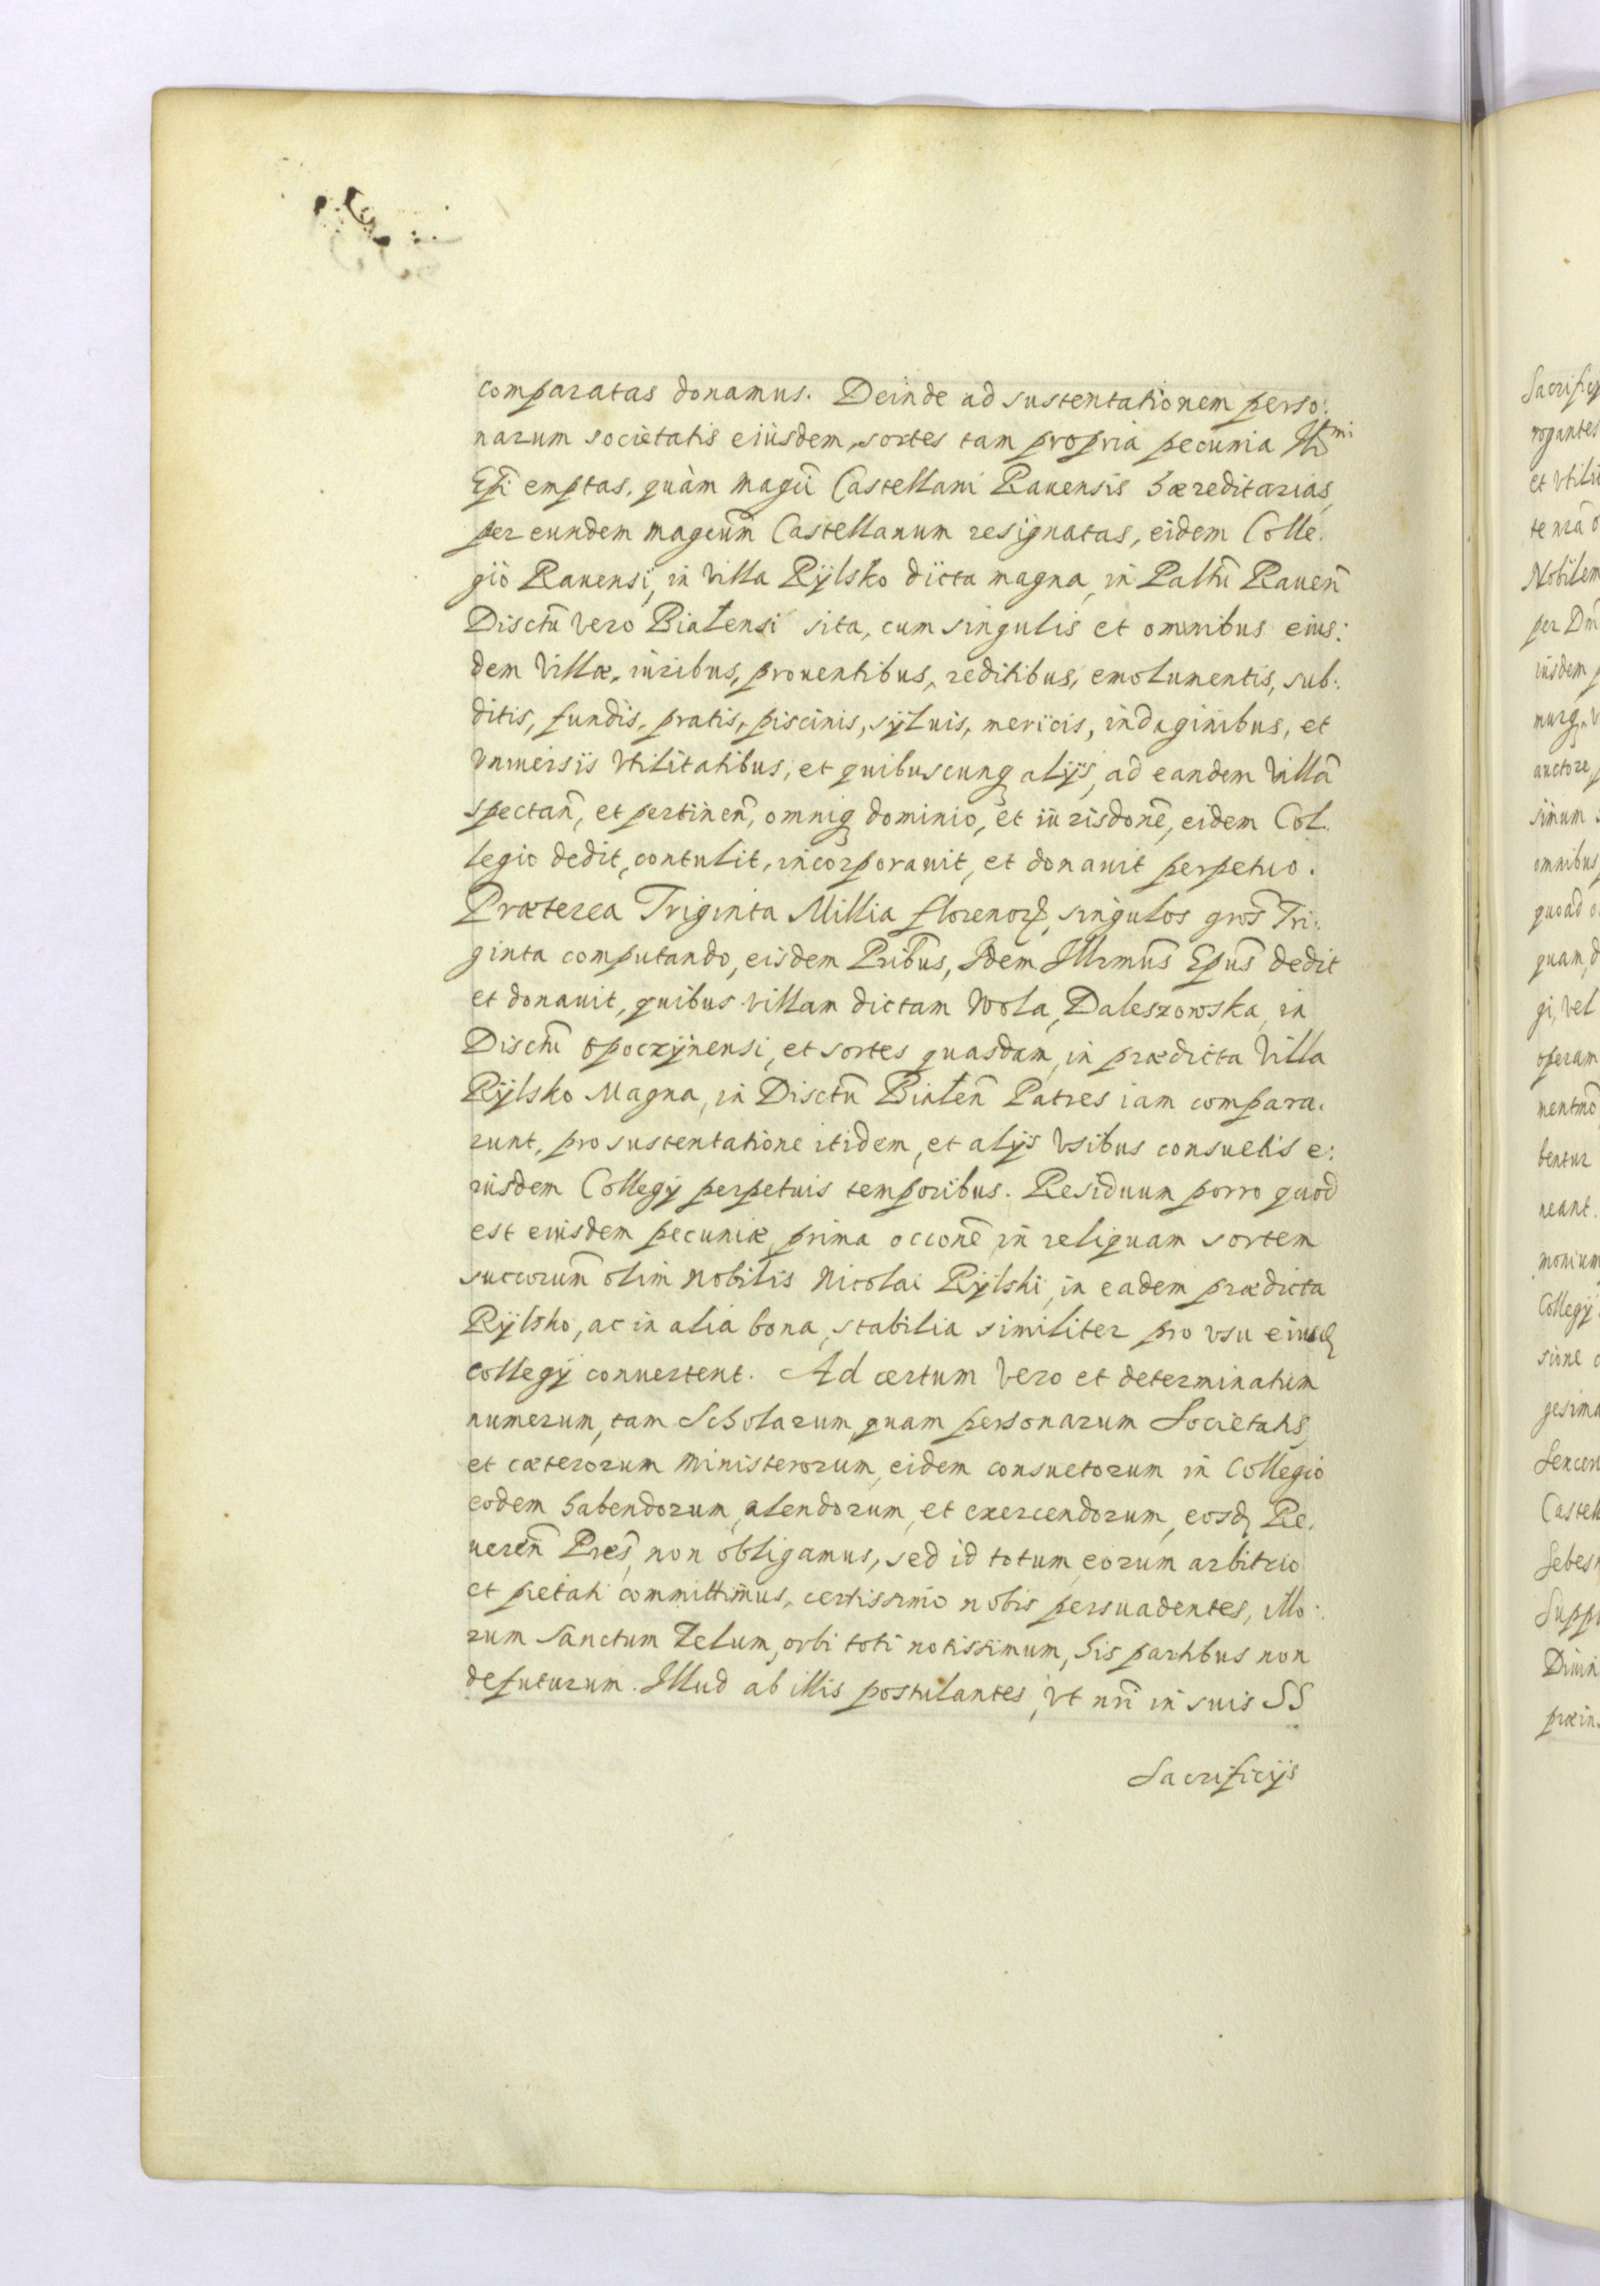 comparatas donamus. Deinde ad sustentationem perso:
narum societatis eiusdem, sortes tam propria pecunia Ill^mi
Epi emptas, quàm magci Castellani Rauensis hæreditarias,
per eundem magcum Castellanum resignatas, eidem Colle:
gio Rauensi, in Villa Rÿlsko dicta magna, in Pallnu Rauen̄
Disctu vero Białensi sita, cum singulis et omnibus eius:
dem Villæ, iuribus, prouentibus, reditibus, emolumentis, sub:
ditis, fundis, pratis, piscinis, sÿluis, mericis, indaginibus, et
vniuersis vtilitatibus, et quibuscunq alÿs, ad eandem Villā
spectan̄, et pertinen̄, omniq dominio, et iurisdone, eidem Col:
legio dedit, contulit, incorporauit, et donauit perpetuo.
Præterea Triginta Millia florenor, singulos gros̄ Tri:
ginta computando, eisdem Pribus, Idem Illrmus Epus dedit
et donauit, quibus villam dictam Wola, Daleszowska, in
Disctu Opoczÿnensi, et sortes quasdam, in prædicta Villa
Rÿlsko Magna, in Disctu Białen̄ Patres iam compara:
runt, pro sustentatione itidem, et alÿs vsibus consuetis e:
iusdem Collegÿ perpetuis temporibus. Residuum porro quod
est eiusdem pecuniæ, prima occone, in reliquam sortem
succorum olim Nobilis Nicolai Rÿlski, in eadem prædicta
Rÿlsko, ac in alia bona, stabilia similiter pro vsu eiusd
collegÿ conuertent. Ad certum vero et determinatum
numerum, tam Scholarum quam personarum Societatis,
et cæterorum ministerorum, eidem consuetorum in Collegio
eodem habendorum, alendorum, et exercendorum, eosd Re:
ueren̄ Pres, non obligamus, sed id totum, eorum arbitrio
et pietati committimus, certissimo nobis persuadentes, illo:
rum Sanctum Zelum, orbi toti notissimum, his partibus non
defuturum. Illud ab illis postulantes, vt nri in suis SS
Sacrificÿs